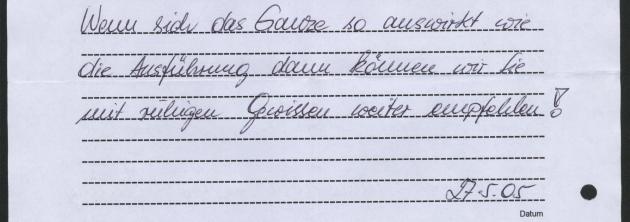 Wenn sich das Ganze so auswirkt wie
die Ausführung dann können wir Sie
mit ruhigen Gewissen weiter empfehlen!
27.5.05
Datum